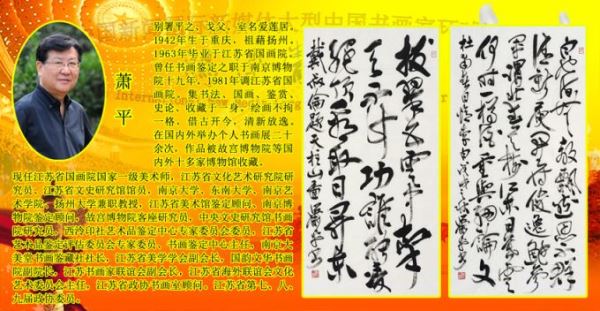 萧平
别署平之、戈父，室名爱莲居。
1942年生于重庆，祖藉扬州，
1963年毕业于江苏省国画院，
曾任书画鉴定之职于南京博物
院十九年，1981年调江苏省国
画院。集书法、国画、鉴赏、
史论、收藏于一身，绘画不拘
一格，借古开今，清新放逸。
在国内外举办个人书画展二十
余次，作品被故宫博物院等国
内外十多家博物馆收藏。
现任江苏省国画院国家一级美术师，江苏省文化艺术研究院研
究员、江苏省文史研究馆馆员，南京大学、东南大学、南京艺
术学院、扬州大学兼职教授，江苏省美术馆鉴定顾问、南京博
物院鉴定顾问、故宫博物院客座研究员、中央文史研究馆书画
院研究员、西泠印社艺术品鉴定中心专家委员会委员、江苏省
艺术品鉴定评估委员会专家委员、书画鉴定中心主任，南京大
美堂书画鉴藏社社长，江苏省美学学会副会长，国韵文华书画
院副院长，江苏书画家联谊会副会长，江苏省海外联谊会文化
艺术委员会主任，江苏省政协书画室顾问。江苏省第七、八、
九届政协委员。
拔翠五云中
白也诗无敌飘然思不群